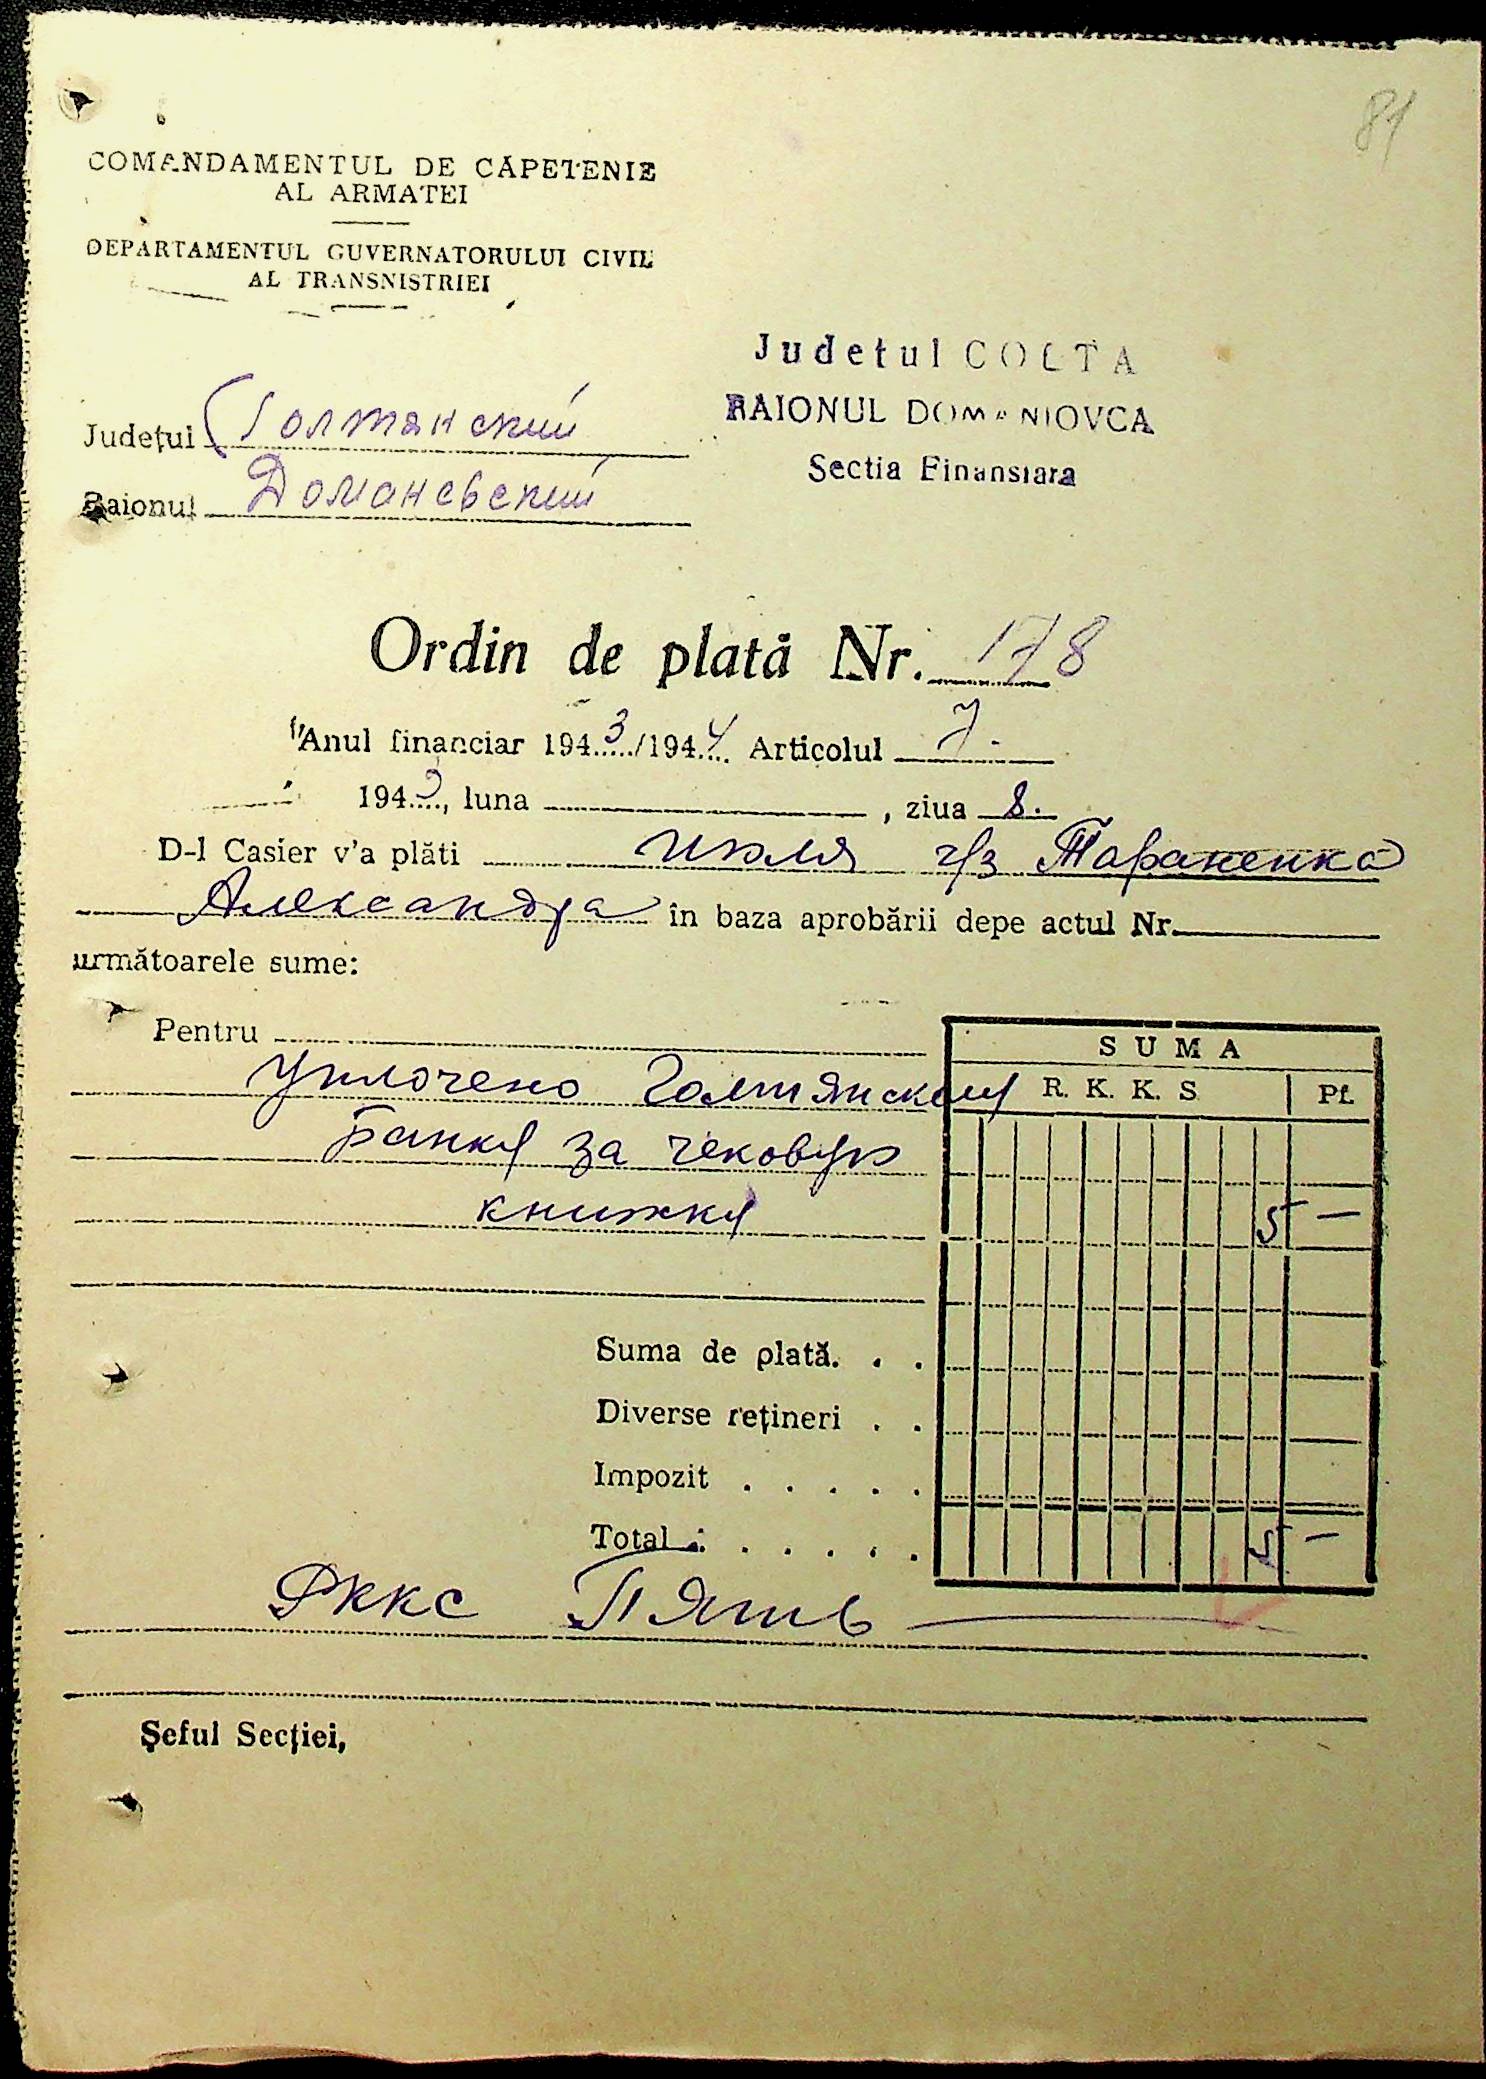 81
COMANDAMENTUL DE CAPETENIE
AL ARMATEI
DEPARTAMENTUL GUVERNATORULUI CIVIL
AL TRANSNISTRIEI
Judetul COLTA
RAIONUL DOMANIOVCA
Sectia Finansiara
Județul Голтянский
Raionul Доманевский
Ordin de plată Nr. 178
Anul financiar 1943/1944 Articolul 7.
1943, luna , ziua 8.
D-l Casier v'a plăti июля ч/з Тараненко
Александра în baza aprobării depe actul Nr.
următoarele sume:
Pentru
SUMA
Уплочено Голтянскому R. K. K. S. Pf.
Банку за чековую
книжку 5 —
Suma de plată. . .
Diverse rețineri . .
Impozit . . . . .
Total . . . . . . 5 —
РККС Пять —
Șeful Secției,